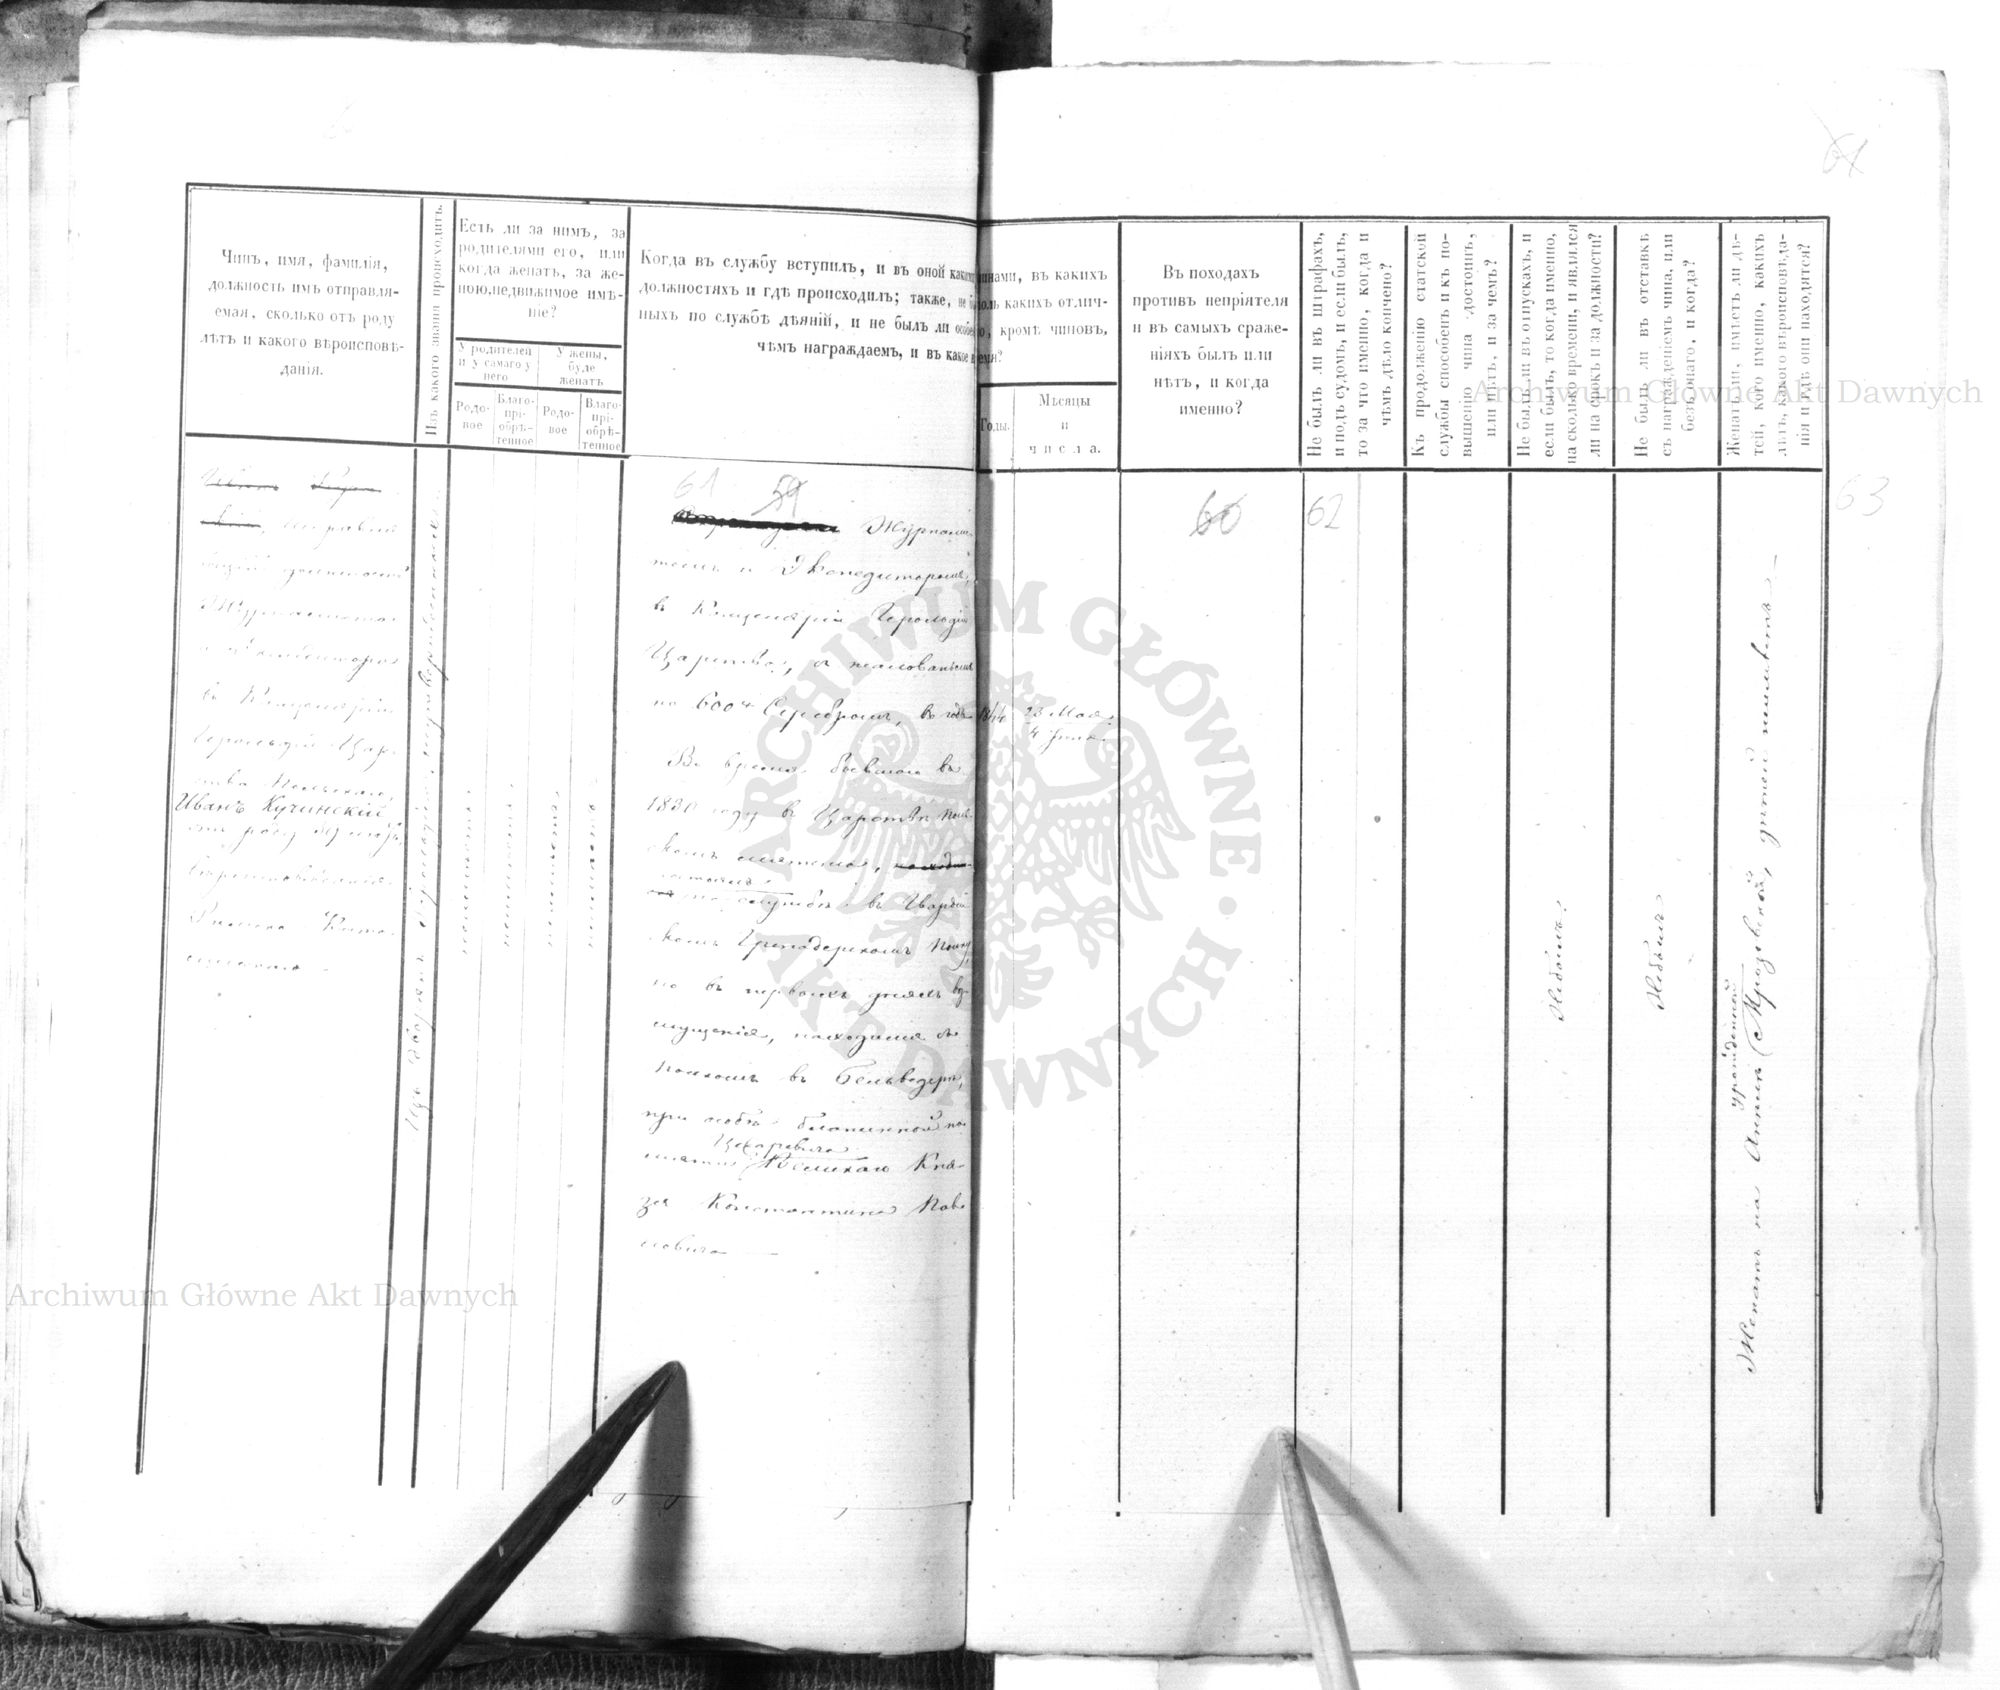 64
Чинъ, имя, фамилія,
должность имъ отправля-
емая, сколько отъ роду
лѣтъ и какого вѣроисповѣ-
данія.
Изъ какого званія происходитъ.
Есть ли за нимъ, за
родителями его, или
когда женатъ, за же-
ною, недвижимое имѣ-
ніе?
У родителей
и у самаго у
него
У жены,
буде
женатъ
Родо-
вое
Благо-
прі-
обрѣ-
тенное
Родо-
вое
Благо-
прі-
обрѣ-
тенное
Когда въ службу вступилъ, и въ оной какими чинами, въ какихъ
должностяхъ и гдѣ происходилъ; также, не было ль какихъ отлич-
ныхъ по службѣ дѣяній, и не былъ ли особенно, кромѣ чиновъ,
чѣмъ награждаемъ, и въ какое время?
Годы.
Мѣсяцы
и
числа.
Въ походахъ
противъ непріятеля
и въ самыхъ сраже-
ніяхъ былъ или
нѣтъ, и когда
именно?
Не былъ ли въ штрафахъ,
и подъ судомъ, и если былъ,
то за что именно, когда и
чѣмъ дѣло кончено?
Къ продолженію статской
службы способенъ и къ по-
вышенію чина достоинъ,
или нѣтъ, и за чемъ?
Не былъ ли въ отпускахъ, и
если былъ, то когда именно,
на сколько времени, и явился
ли на срокъ изъ должности?
Не былъ ли въ отставкѣ
съ награжденіемъ чина, или
безъ онаго, и когда?
Женатъ ли, имѣетъ ли дѣ-
тей, кого именно, какихъ
лѣтъ, какого вѣроисповѣда-
нія и гдѣ они находятся?
Иванъ
должность
Журналиста
и Экспедитора
въ Канцеляріи
Герольдіи Цар-
ства Польскаго,
Иванъ Кучинскій
отъ роду
вѣроисповѣданія
Римско Като-
лическаго
Изъ дворянъ
неимѣетъ
неимѣетъ
неимѣетъ
неимѣетъ
61 59
Журналис-
томъ и Экспедиторомъ,
въ Канцеляріи Герольдіи
Царства, съ жалованьемъ
по 600 Серебромъ, въ годъ
23 Мая
4 Іюня
Во время бывшаго въ
1830 году въ Царствѣ Поль-
скомъ мятежа,
службѣ въ Гвардей-
скомъ Гренадерскомъ Полку,
но въ первыхъ дняхъ воз-
мущенія, находился съ
Полкомъ въ Бельведерѣ,
при особѣ блаженной па-
Цесаревича
мяти Великаго Кня-
зя Константина Пав-
ловича
60
62
63
Небылъ.
Небылъ
урожденной
Женатъ на Аннѣ Мрозовской, дѣтей неимѣетъ
ARCHIWUM GŁÓWNE
AKT DAWNYCH
Archiwum Główne Akt Dawnych
Archiwum Główne Akt Dawnych